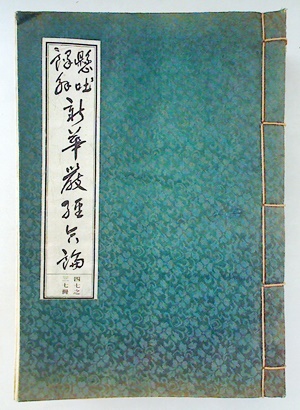 懸吐
譯解
新華嚴經合論
四七之
三七冊